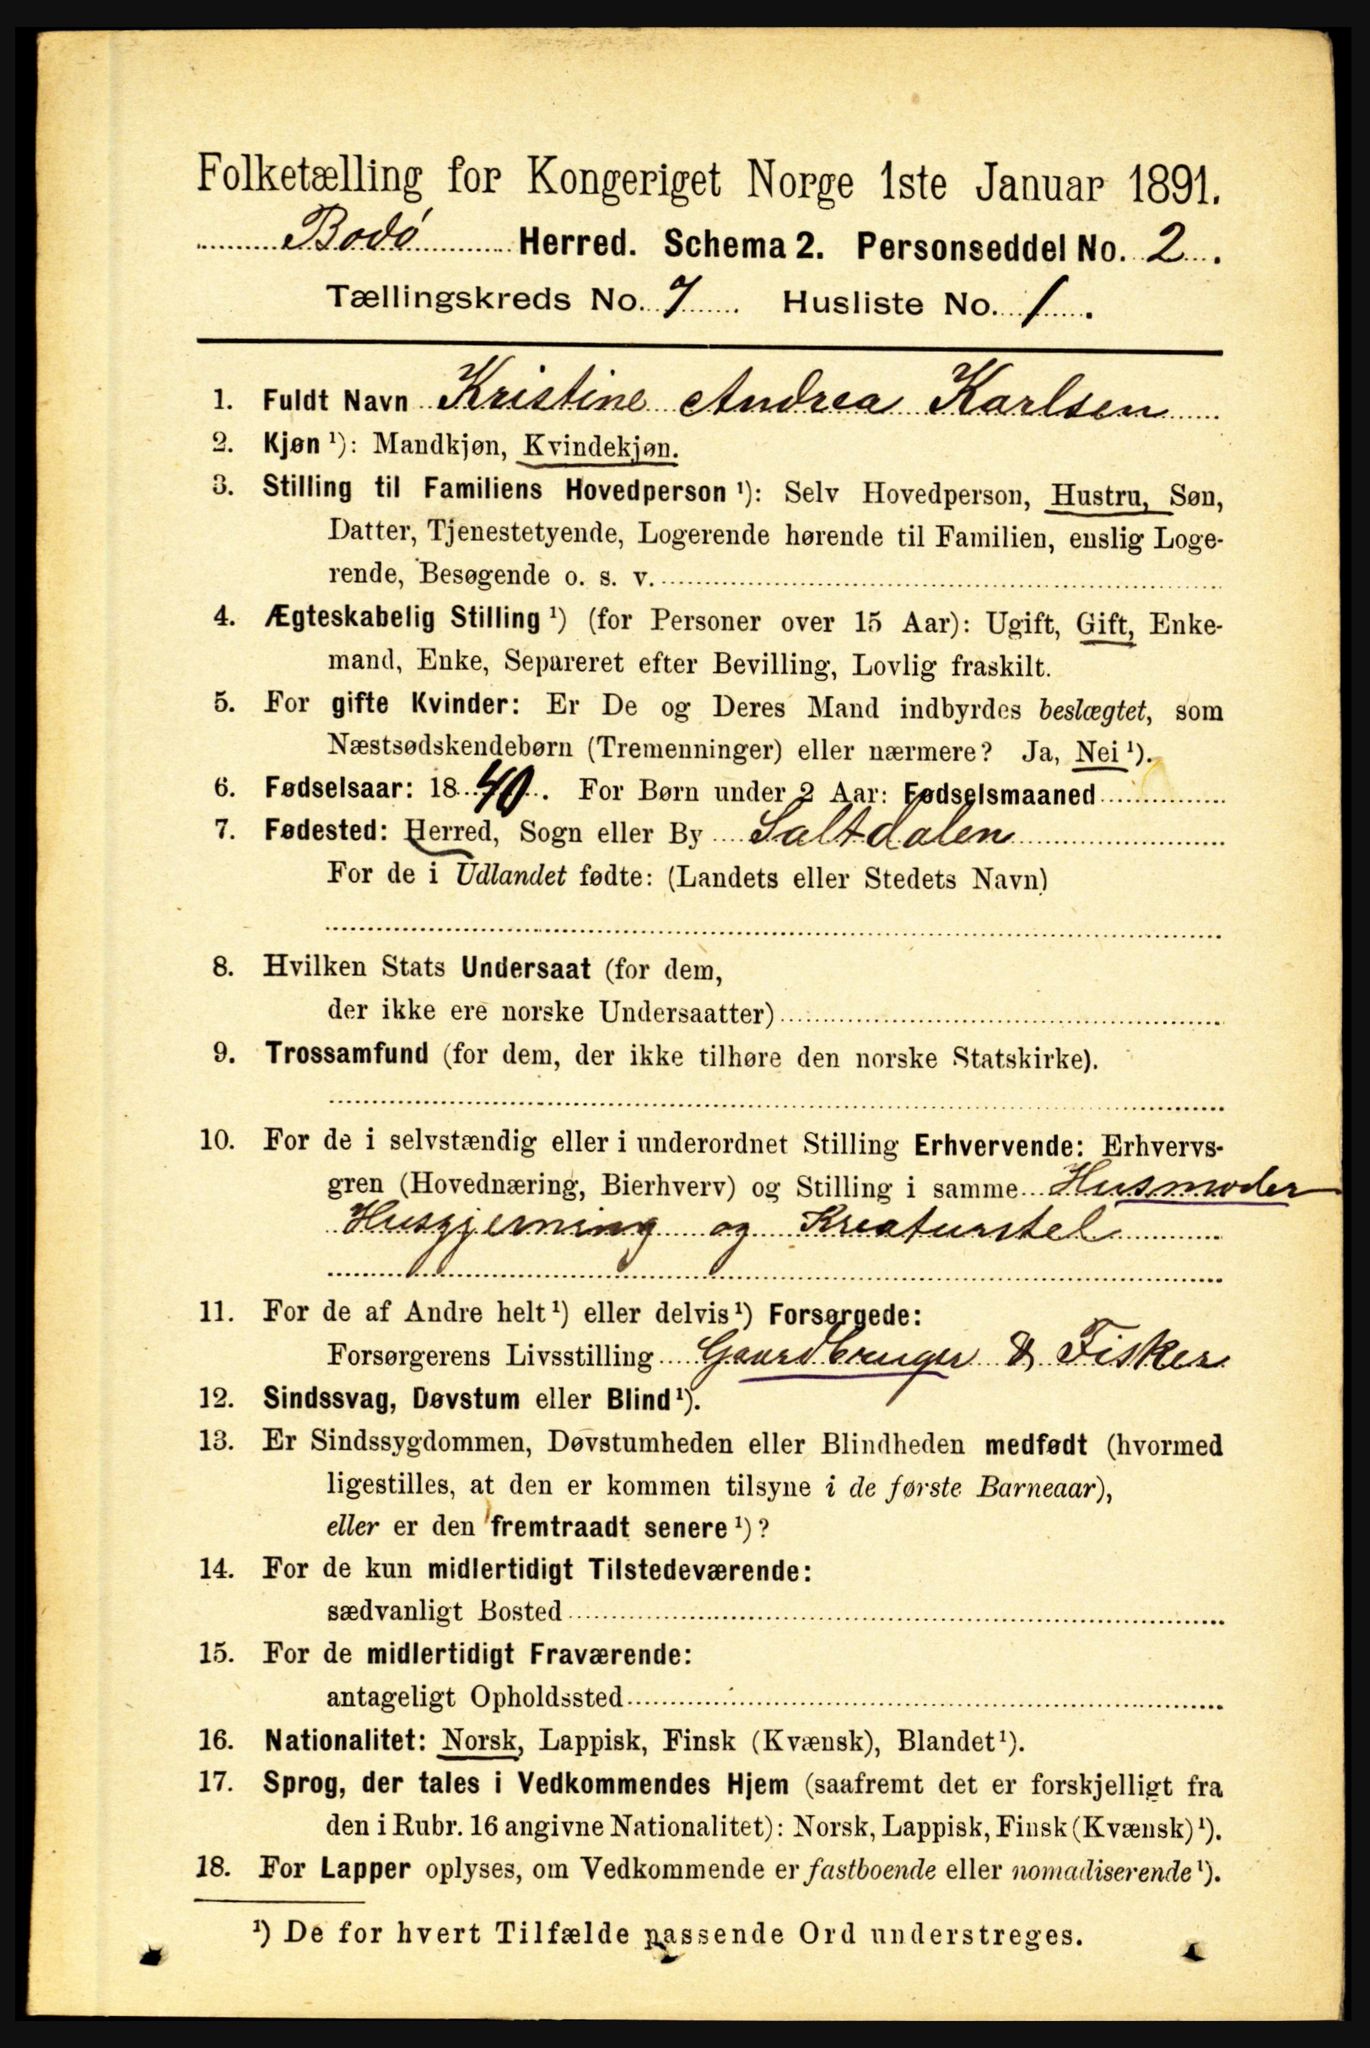 Folketælling for Kongeriget Norge 1ste Januar 1891.
Bodø Herred. Schema 2. Personseddel No. 2.
Tællingskreds No. 7 Husliste No. 1.
1. Fuldt Navn Kristine Andrea Karlsen
2. Kjøn ¹): Mandkjøn, Kvindekjøn.
3. Stilling til Familiens Hovedperson ¹): Selv Hovedperson, Hustru, Søn,
Datter, Tjenestetyende, Logerende hørende til Familien, enslig Loge-
rende, Besøgende o. s. v.
4. Ægteskabelig Stilling ¹) (for Personer over 15 Aar): Ugift, Gift, Enke-
mand, Enke, Separeret efter Bevilling, Lovlig fraskilt.
5. For gifte Kvinder: Er De og Deres Mand indbyrdes beslægtet, som
Næstsødskendebørn (Tremenninger) eller nærmere? Ja, Nei ¹).
6. Fødselsaar: 1840. For Børn under 2 Aar: Fødselsmaaned
7. Fødested: Herred, Sogn eller By Saltdalen
For de i Udlandet fødte: (Landets eller Stedets Navn)
8. Hvilken Stats Undersaat (for dem,
der ikke ere norske Undersaatter)
9. Trossamfund (for dem, der ikke tilhøre den norske Statskirke).
10. For de i selvstændig eller i underordnet Stilling Erhvervende: Erhvervs-
gren (Hovednæring, Bierhverv) og Stilling i samme Husmoder
Husgjerning og Kreaturstel
11. For de af Andre helt ¹) eller delvis ¹) Forsørgede:
Forsørgerens Livsstilling Gaardbruger & Fisker
12. Sindssvag, Døvstum eller Blind ¹).
13. Er Sindssygdommen, Døvstumheden eller Blindheden medfødt (hvormed
ligestilles, at den er kommen tilsyne i de første Barneaar),
eller er den fremtraadt senere ¹)?
14. For de kun midlertidigt Tilstedeværende:
sædvanligt Bosted
15. For de midlertidigt Fraværende:
antageligt Opholdssted
16. Nationalitet: Norsk, Lappisk, Finsk (Kvænsk), Blandet ¹).
17. Sprog, der tales i Vedkommendes Hjem (saafremt det er forskjelligt fra
den i Rubr. 16 angivne Nationalitet): Norsk, Lappisk, Finsk (Kvænsk) ¹).
18. For Lapper oplyses, om Vedkommende er fastboende eller nomadiserende ¹).
¹) De for hvert Tilfælde passende Ord understreges.